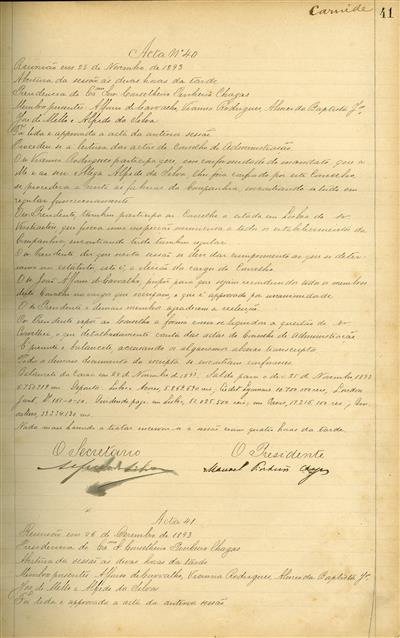 Carnide 41
Acta Nº 40
Reunião em 25 de Novembro de 1893
Abertura da sessão ás duas horas da tarde
Presidencia do Exmo Snr Conselheiro Pinheiro Chagas
Membros presentes, Affonso de Carvalho, Vianna Rodrigues, Almeida Baptista Jor
José de Mello e Alfredo da Silva
Foi lida e approvada a acta da anterior sessão
Procedeu se á leitura das actas do Conselho de Administração
O Snr Vianna Rodrigues participa que, em conformidade do mandato, que a
elle e ao seu Collega Alfredo da Silva, lhe fora confiado por este Conselho,
se procedera á visita ás fabricas da Companhia, encontrando-se tudo em
regular funccionamento
O Snr Presidente, tambem participa ao Conselho a estada em Lisboa do Snr
que fizera uma inspecção a todos os estabelecimentos da
Companhia, encontrando tudo tambem regular
O Snr Presidente diz que nesta sessão se deve dar cumprimento ao que se
nos estatutos, isto é, a eleição dos cargos do Conselho
O Snr João Affonso de Carvalho, propõe para que sejam reconduzidos todos os membros
deste Conselho nos cargos que occupam, o que é approvado por unanimidade
O Snr Presidente e demais membros agradecem a reeleição
O Snr Presidente expõe ao Conselho a forma como se liquidou a questão do Snr
e que detalhadamente consta das actas do Conselho de Administração
É presente o balancete accusando os algarismos abaixo transcriptos
Todos os demais documentos da escripta se encontram conformes
Balancete da Caixa em 24 de Novembro de 1893. Saldo para o dia 25 de Novembro 1893
Nada mais havendo a tratar encerrou-se a sessão eram quatro horas da tarde.
O Secretario O Presidente
Alfredo da Silva Manuel Pinheiro Chagas
Acta 41
Reunião em 26 de Dezembro de 1893
Presidencia do Exmo Sr Conselheiro Pinheiro Chagas
Abertura da sessão ás duas horas da tarde
Membros presentes, Affonso de Carvalho, Vianna Rodrigues, Almeida Baptista Jor
José de Mello e Alfredo da Silva
Foi lida e approvada a acta da anterior sessão